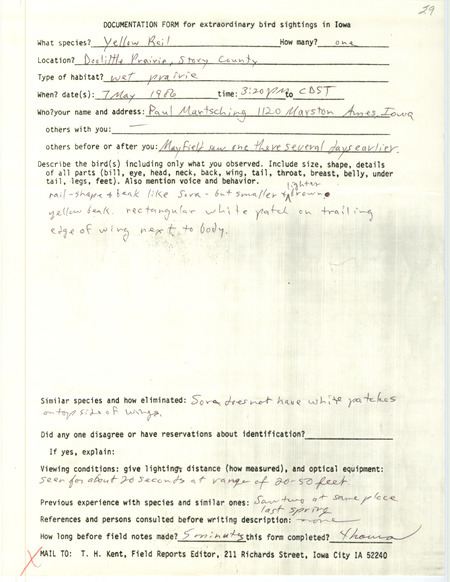 29
DOCUMENTATION FORM for extraordinary bird sightings in Iowa
What species? Yellow Rail How many? one
Location? Doolittle Prairie, Story County
Type of habitat? wet prairie
When? date(s): 7 May 1986 time: 3:20 PM to CDST
Who? your name and address: Paul Martsching 1120 Marston Ames, Iowa
others with you: —
others before or after you: Mayfield saw one there several days earlier.
Describe the bird(s) including only what you observed. Include size, shape, details
of all parts (bill, eye, head, neck, back, wing, tail, throat, breast, belly, under
tail, legs, feet). Also mention voice and behavior.
lighter
rail-shape & beak like Sora - but smaller & brown
yellow beak. rectangular white patch on trailing
edge of wing next to body.
Similar species and how eliminated: Sora does not have white patches
on top side of wings.
Did any one disagree or have reservations about identification?
If yes, explain:
Viewing conditions: give lighting, distance (how measured), and optical equipment:
seen for about 20 seconds at range of 20-50 feet
Previous experience with species and similar ones: Saw two at same place
last spring
References and persons consulted before writing description: none
How long before field notes made? 5 minutes this form completed? 4 hours
X MAIL TO: T. H. Kent, Field Reports Editor, 211 Richards Street, Iowa City IA 52240